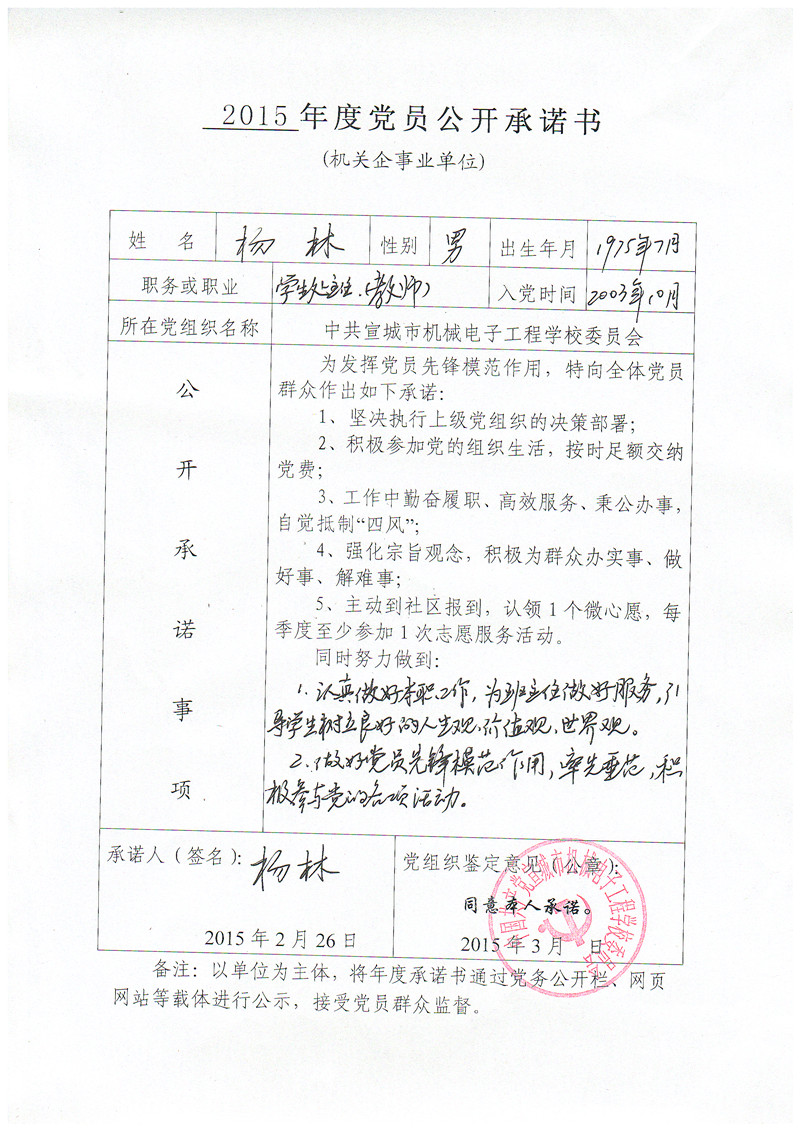 2015 年度党员公开承诺书
(机关企事业单位)
姓 名 杨 林 性别 男 出生年月 1975年7月
职务或职业 学生处主任.(教师) 入党时间 2003年10月
所在党组织名称 中共宣城市机械电子工程学校委员会
公开承诺事项
为发挥党员先锋模范作用，特向全体党员
群众作出如下承诺：
1、坚决执行上级党组织的决策部署；
2、积极参加党的组织生活，按时足额交纳
党费；
3、工作中勤奋履职、高效服务、秉公办事，
自觉抵制“四风”；
4、强化宗旨观念，积极为群众办实事、做
好事、解难事；
5、主动到社区报到，认领 1 个微心愿，每
季度至少参加 1 次志愿服务活动。
同时努力做到：
1. 认真做好本职工作，为班主任做好服务，引
导学生树立良好的人生观、价值观、世界观。
2. 做好党员先锋模范作用，率先垂范，积
极参与党的各项活动。
承诺人（签名）： 杨林
2015 年 2 月 26 日
党组织鉴定意见（公章）：
同意本人承诺。
2015 年 3 月 日
中国共产党宣城市机械电子工程学校委员会
备注：以单位为主体，将年度承诺书通过党务公开栏、网页
网站等载体进行公示，接受党员群众监督。